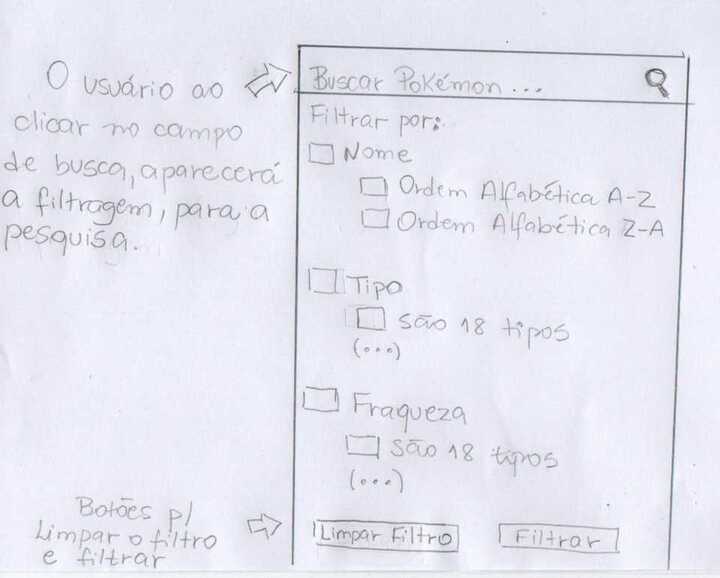 O usuário ao
clicar no campo
de busca, aparecerá
a filtragem, para a
pesquisa.
Buscar Pokémon...
Filtrar por:
Nome
Ordem Alfabética A-Z
Ordem Alfabética Z-A
Tipo
são 18 tipos
(...)
Fraqueza
são 18 tipos
(...)
Botões p/
Limpar o filtro
e filtrar
Limpar Filtro
Filtrar